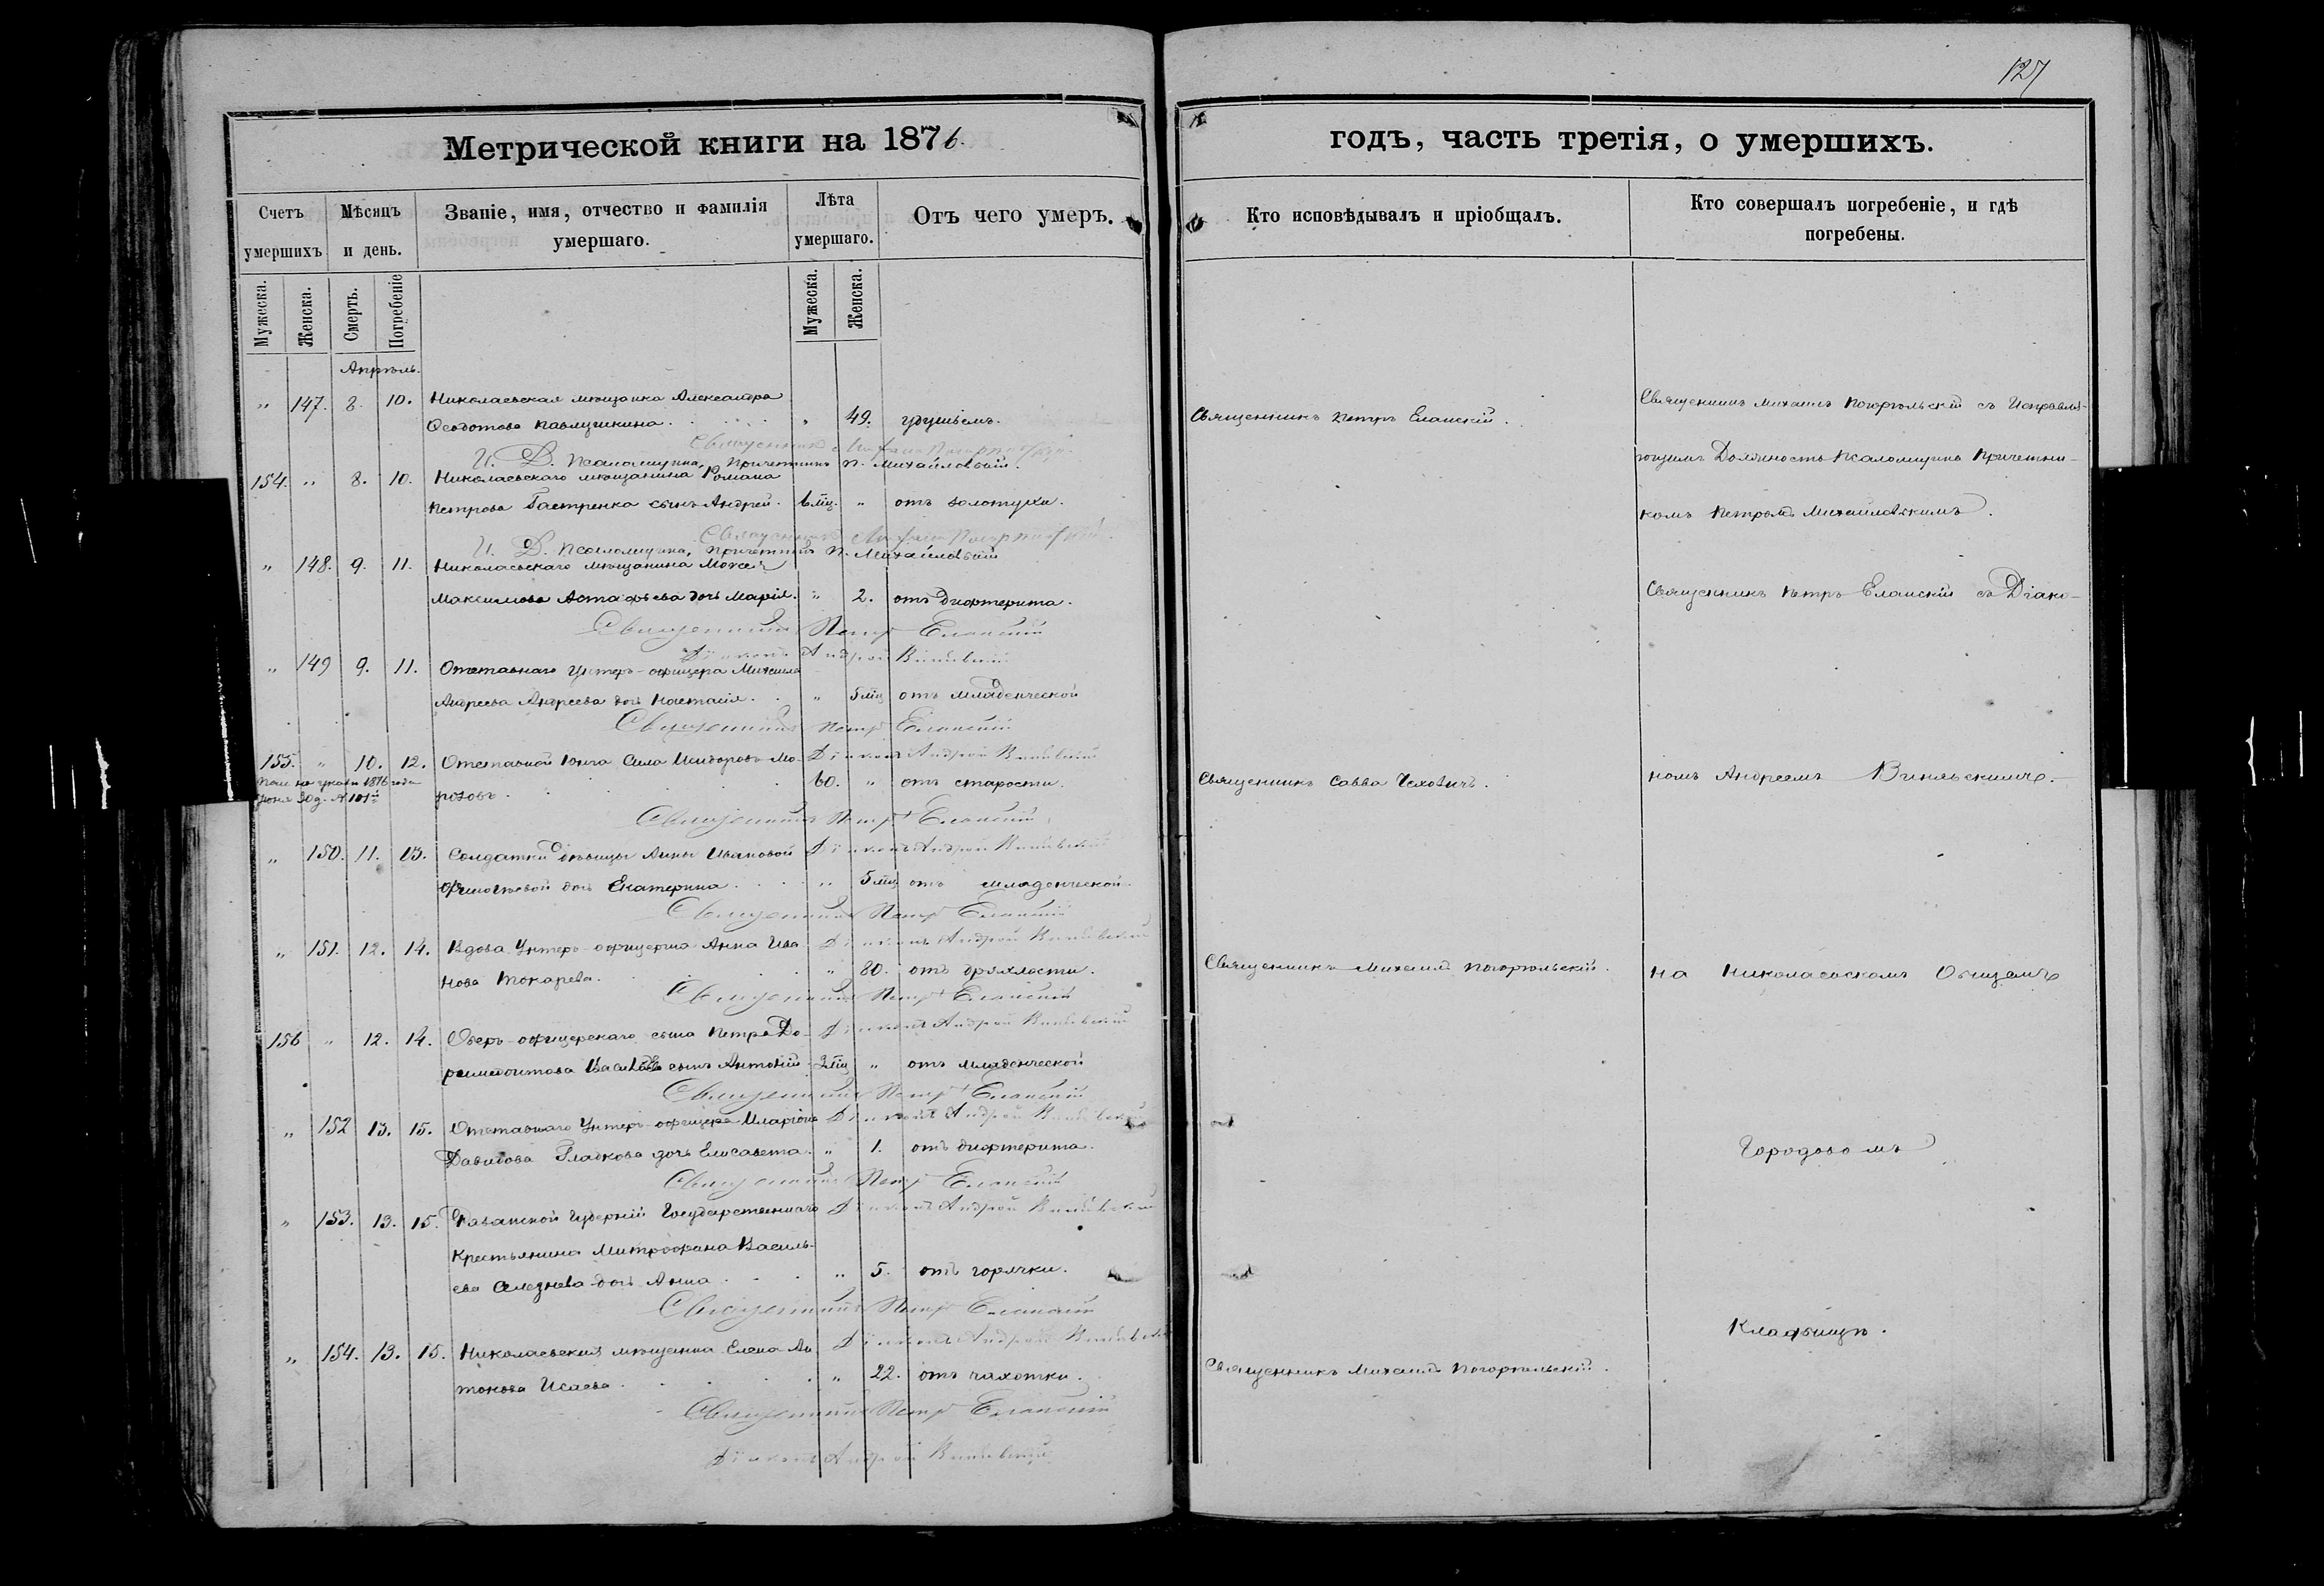 127
Метрической книги на 1876.
Счетъ умершихъ
Мѣсяцъ и день.
Званіе, имя, отчество и фамилія умершаго.
Лѣта умершаго.
Отъ чего умеръ.
Мужеска.
Женска.
Смерть.
Погребеніе
Мужеска.
Женска.
Апрѣль.
„ 147. 8. 10. Николаевская мѣщанка Александра
Ѳеодотова Павлушкина „ 49. удушьемъ.
Священникъ Михаилъ Погорѣльскій
И. Д. Псаломщика, Причетникъ П. Михайловскій.
154. „ 8. 10. Николаевскаго мѣщанина Романа
Петрова сынъ Андрей. 6 мц. „ отъ золотухи.
Священникъ Михаилъ Погорѣльскій.
И. Д. Псаломщика, Причетникъ П. Михайловскій
„ 148. 9. 11. Николаевскаго мѣщанина Моисея
Максимова Астафьева дочь Марія. „ 2. отъ дифтерита.
Священникъ Петръ Еланскій
Діаконъ Андрей
„ 149 9. 11. Отставнаго Унтеръ-офицера Михаила
Андреева Андреева дочь Настасія. „ 5 мц отъ младенческой
Священникъ Петръ Еланскій
Діаконъ Андрей
155. „ 10. 12. Отставной Юнга Сила Исидоровъ Мо-
розовъ 60. „ отъ старости.
1876 года
Священникъ Петръ Еланскій
Діаконъ Андрей
„ 150. 11. 13. Солдатки дѣвицы Анны Ивановой
дочь Екатерина „ 5 мц отъ младенческой.
Священникъ Петръ Еланскій
Діаконъ Андрей
„ 151. 12. 14. Вдова Унтеръ-офицерша Анна Ива
нова Токарева. „ 80. отъ дряхлости.
Священникъ Петръ Еланскій
Діаконъ Андрей
156 „ 12. 14. Оберъ-офицерскаго сына Петра До-
римедонтова сынъ Антоній „ отъ младенческой
Священникъ Петръ Еланскій
Діаконъ Андрей
„ 152 13. 15. Отставнаго Унтеръ-офицера Иларіона
Давидова Гладкова дочь Елисавета. „ 1. отъ дифтерита.
Священникъ Петръ Еланскій
Діаконъ Андрей
„ 153. 13. 15. Казанской Губерніи Государственнаго
Крестьянина Митрофана Василь-
ева Селезнева дочь Анна „ 5. отъ горячки.
Священникъ Петръ Еланскій
Діаконъ Андрей
„ 154. 13. 15. Николаевская мѣщанка Елена Ан
тонова Исаева „ 22. отъ чахотки.
Священникъ Петръ Еланскій
Діаконъ Андрей
годъ, часть третія, о умершихъ.
Кто исповѣдывалъ и пріобщалъ.
Кто совершалъ погребеніе, и гдѣ погребены.
Священникъ Петръ Еланскій.
Священникъ Савва Чеховичъ.
Священникъ Михаилъ Погорѣльскій.
Священникъ Михаилъ Погорѣльскій.
Священникъ Михаилъ Погорѣльскій съ Исправля-
ющимъ Должность Псаломщика Причетни-
комъ Петромъ Михайловскимъ.
Священникъ Петръ Еланскій съ Діако-
номъ Андреемъ
на Николаевскомъ Общемъ
Городовомъ
Кладбищѣ.